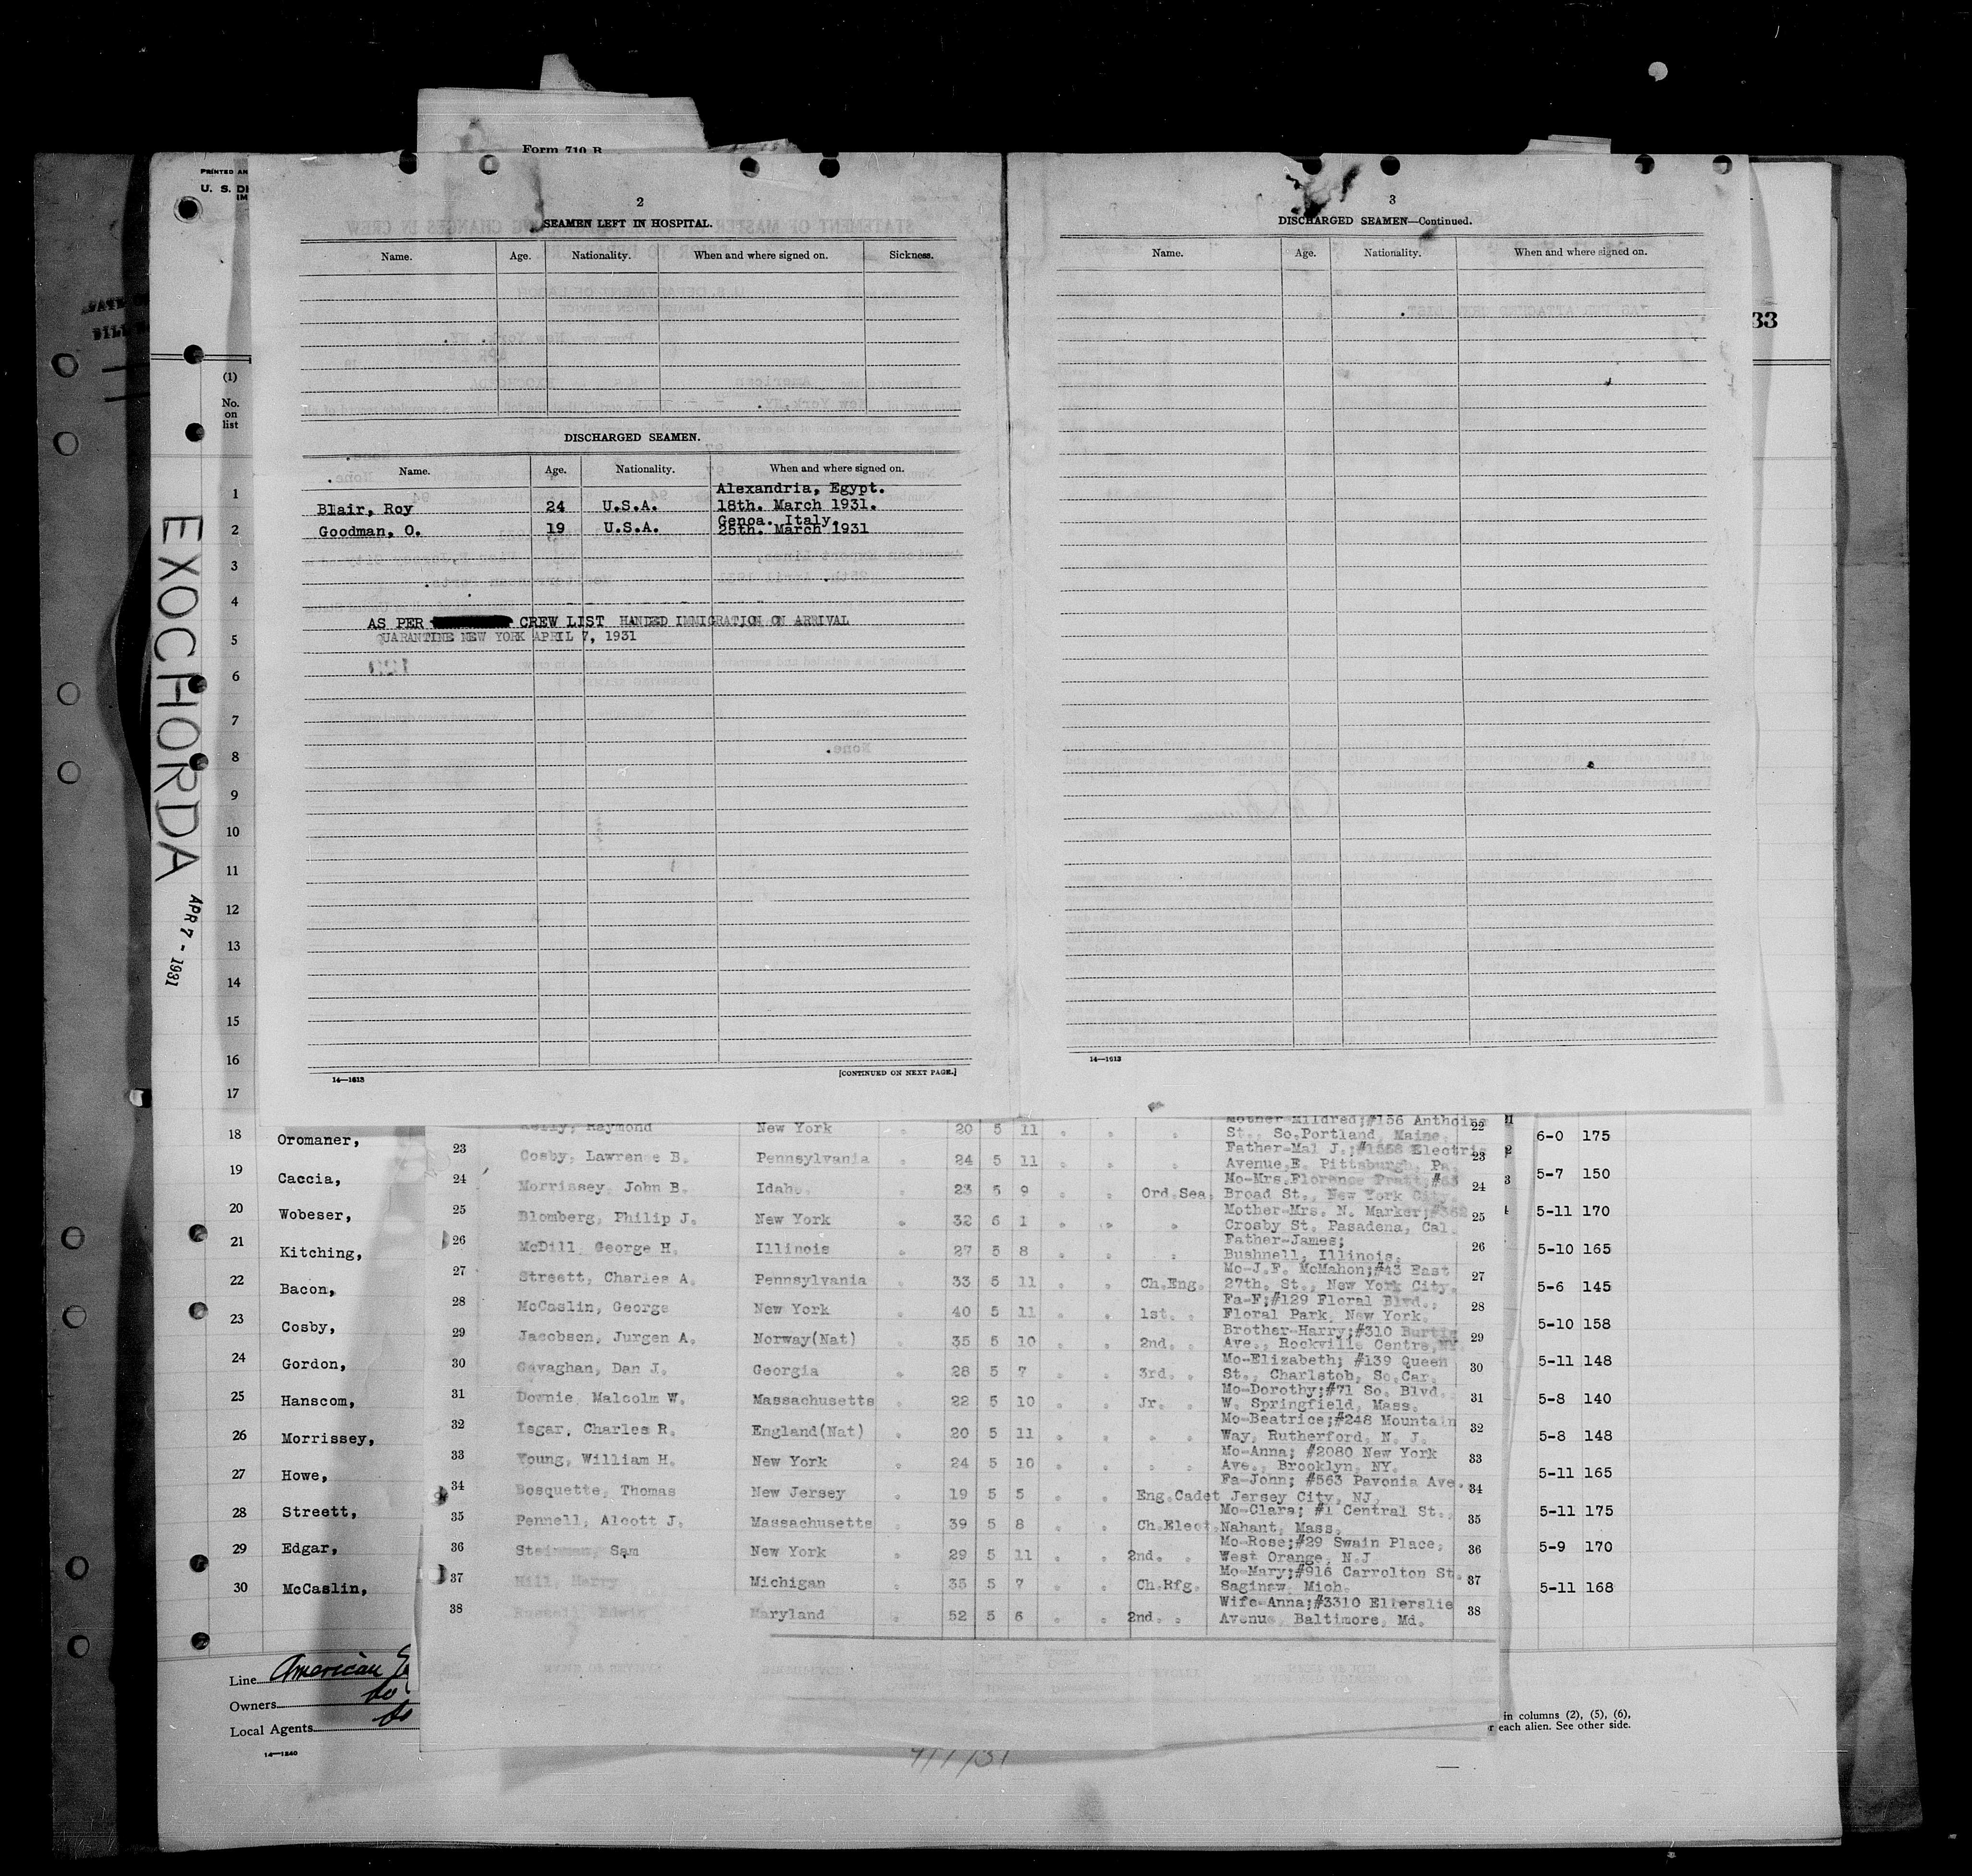 Form 710 B
PRINTED
U. S. D
IM
2
SEAMEN LEFT IN HOSPITAL.
Name. Age. Nationality. When and where signed on. Sickness.
DISCHARGED SEAMEN.
Name. Age. Nationality. When and where signed on.
Alexandria, Egypt.
Blair, Roy 24 U.S.A. 18th. March 1931.
Genoa. Italy.
Goodman, O. 19 U.S.A. 25th. March 1931
AS PER CREW LIST HANDED IMMIGRATION ON ARRIVAL
QUARANTINE NEW YORK APRIL 7, 1931
14—1613 [CONTINUED ON NEXT PAGE.]
3
DISCHARGED SEAMEN—Continued.
Name. Age. Nationality. When and where signed on.
14—1613
33
EXOCHORDA
APR 7 - 1931
(1)
No.
on
list
1
2
3
4
5
6
7
8
9
10
11
12
13
14
15
16
17
18 Oromaner, 6-0 175
19 Caccia, 5-7 150
20 Wobeser, 5-11 170
21 Kitching, 5-10 165
22 Bacon, 5-6 145
23 Cosby, 5-10 158
24 Gordon, 5-11 148
25 Hanscom, 5-8 140
26 Morrissey, 5-8 148
27 Howe, 5-11 165
28 Streett, 5-11 175
29 Edgar, 5-9 170
30 McCaslin, 5-11 168
Mother-Mildred;#156
Kelly, Raymond New York 20 5 11 St., So.Portland, Maine. 22
Father-Mal J.;
23 Cosby, Lawrense B. Pennsylvania 24 5 11 Avenue,E. Pittsburgh, Pa. 23
Mo-Mrs.Florance Pratt;#63
24 Morrissey, John B. Idaho. 23 5 9 Ord.Sea. Broad St., New York City. 24
Mother-Mrs. N. Marker;
25 Blomberg, Philip J. New York 32 6 1 Crosby St. Pasadena, Cal. 25
Father-James;
26 McDill, George H. Illinois 27 5 8 Bushnell, Illinois. 26
Mo-J.F. McMahon;#43 East
27 Streett, Charles A. Pennsylvania 33 5 11 Ch.Eng. 27th. St., New York City. 27
Fa-F;#129 Floral Blvd.,
28 McCaslin, George New York 40 5 11 1st. Floral Park, New York. 28
Brother-Harry;#310 Burtis
29 Jacobsen, Jurgen A. Norway(Nat) 35 5 10 2nd. Ave., Rockville Centre,NY. 29
Mo-Elizabeth; #139 Queen
30 Gavaghan, Dan J. Georgia 28 5 7 3rd. St., Charlstob, So.Car. 30
Mo-Dorothy;#71 So. Blvd.
31 Downie, Malcolm W. Massachusetts 22 5 10 Jr. W. Springfield, Mass. 31
Mo-Beatrice;#248 Mountain
32 Isgar, Charles R. England(Nat) 20 5 11 Way, Rutherford, N. J. 32
Mo-Anna; #2080 New York
33 Young, William H. New York 24 5 10 Ave., Brooklyn, NY. 33
Fa-John; #563 Pavonia Ave.
34 Bosquette, Thomas New Jersey 19 5 5 Eng.Cadet Jersey City, NJ. 34
Mo-Clara; #1 Central St.,
35 Pennell, Alcott J. Massachusetts 39 5 8 Ch.Elect. Nahant, Mass. 35
Mo-Rose;#29 Swain Place,
36 Sam New York 29 5 11 2nd. West Orange, N.J 36
Mo-Mary;#916 Carrolton St.
37 Hill, Harry Michigan 35 5 7 Ch.Rfg. Saginaw, Mich. 37
Wife-Anna;#3310 Ellerslie
38 Russell, Edwin Maryland 52 5 6 2nd. Avenue, Baltimore, Md. 38
Line American
Owners do
Local Agents do
14—1240
in columns (2), (5), (6),
r each alien. See other side.
4/7/31